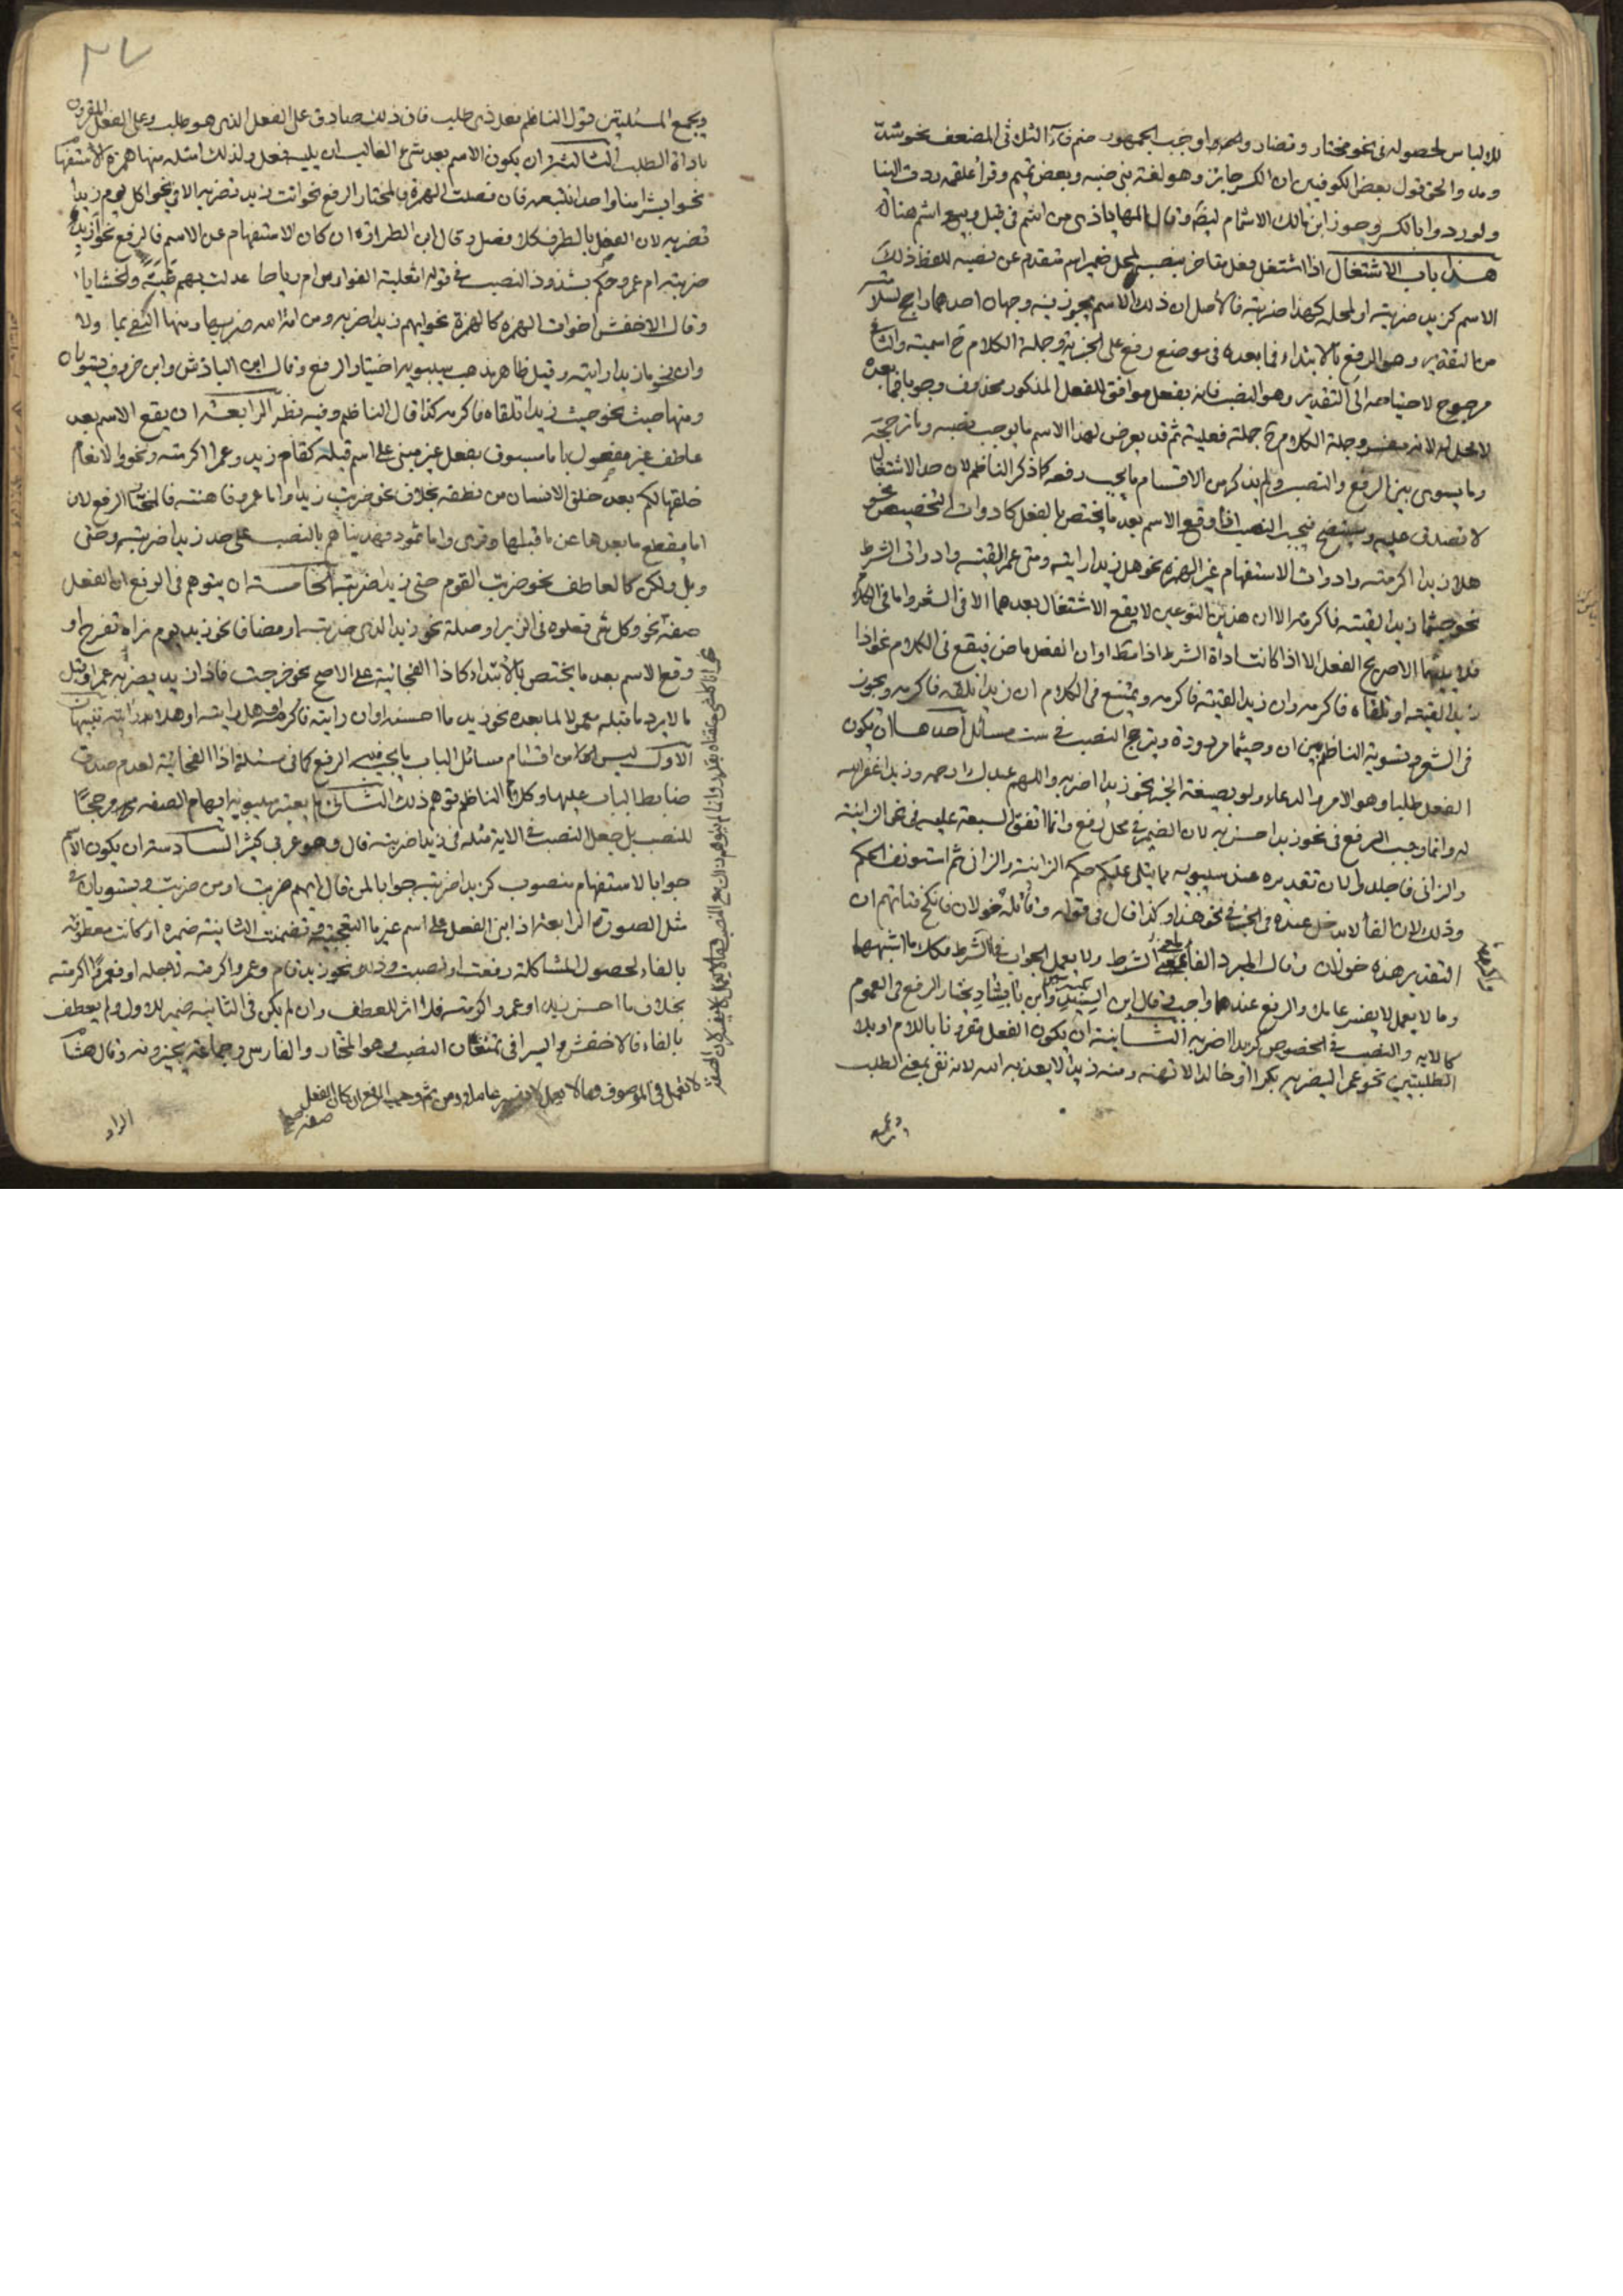 للالباس لحصوله في نحو مختار وتضار واوجب الجمهور ضم فاء الثلاثي المضعف نحو شد
ومد والحق قول بعض الكوفيين ان الكسر جائز وهو لغة بني ضبة وبعض تميم وقرأ علقمة ردت الينا
ولو ردوا بالكسر وجوز ابن مالك الاشمام ايضا وقال المهاباذي من اشم في قيل وبيع اشم هنا
هذا باب الاشتغال اذا اشتغل فعل متاخر بنصبه لمحل ضمير اسم متقدم عن نصبه للفظ ذلك
الاسم كزيد ضربته او لمحله كهذا ضربته فالاصل ان ذلك الاسم يجوز فيه وجهان احدهما راجح لسلامته
من التقدير وهو الرفع بالابتداء فما بعده في موضع رفع على الخبرية وجملة الكلام ح اسمية والثاني
مرجوح لاحتياجه الى التقدير وهو النصب فانه بفعل موافق للفعل المذكور محذوف وجوبا فما بعده
لا محل له لانه مفسر وجملة الكلام ح جملة فعلية ثم قد يعرض لهذا الاسم ما يوجب نصبه وما يرجحه
وما يسوي بين الرفع والنصب ولم يذكر من الاقسام ما يجب رفعه كما ذكر الناظم لان حد الاشتغال
لا يصدق عليه وسيتضح فيجب النصب اذا وقع الاسم بعد ما يختص بالفعل كادوات التحضيض نحو
هلا زيدا اكرمته وادوات الاستفهام غير الهمزة نحو هل زيدا رايته ومتى عمرا لقيته وادوات الشرط
نحو حيثما زيدا لقيته فاكرمه الا ان هذين النوعين لا يقع الاشتغال بعدهما الا في الشعر واما في الكلام
فلا يليهما الا صريح الفعل الا اذا كانت اداة الشرط اذا مطلقا او ان الفعل ماض فيقع في الكلام نحو اذا
زيدا لقيته او تلقاه فاكرمه وان زيدا لقيته فاكرمه ويمتنع في الكلام ان زيدا تلقه فاكرمه ويجوز
في الشعر وتسوية الناظم بين ان وحيثما مردودة ويترجح النصب في ست مسائل احدها ان يكون
الفعل طلبا وهو الامر والدعاء ولو بصيغة الخبر نحو زيدا اضربه واللهم عبدك ارحمه وزيدا غفر الله
له وانما وجب الرفع في نحو زيد احسن به لان الضمير في محل رفع وانما اتفق السبعة عليه في نحو الزانية
والزاني فاجلدوا لان تقديره عند سيبويه مما يتلى عليكم حكم الزانية والزاني ثم استونف الحكم
وذلك لان الفا لا تدخل عنده في الخبر في نحو هذا وكذا قال في قوله وقائلة خولان فانكح فتاتهم ان
التقدير هذه خولان وقال المبرد الفا لمعنى الشرط ولا يعمل الجواب في الشرط فكذا ما اشبهها
وما لا يعمل لا يفسر عاملا والرفع عندهما واجب وقال ابن السيد وابن بابشاذ يختار الرفع في العموم
كالاية والنصب في الخصوص كزيدا اضربه الثانية ان يكون الفعل مقرونا باللام او بلا
الطلبيتين نحو عمرا ليضربه بكر او خالدا لا تهنه ومنه زيدا لا يعذبه الله لانه نفي بمعنى الطلب
ويجمع
٣٧
ويجمع المسئلتين قول الناظم فعل ذي طلب فان ذلك صادق على الفعل الذي هو طلب وعلى الفعل المقرون
باداة الطلب الثالثة ان يكون الاسم بعد شئ الغالب ان يليه فعل ولذلك امثلة منها همزة الاستفهام
نحو ابشرا منا واحدا نتبعه فان فصلت الهمزة فالمختار الرفع نحو اانت زيد تضربه الا في نحو اكل يوم زيدا
تضربه لان الفصل بالظرف كلا فصل وقال ابن الطراوة ان كان الاستفهام عن الاسم فالرفع نحو ازيد
ضربته ام عمرو وحكم بشذوذ النصب في قوله اثعلبة الفوارس ام رياحا عدلت بهم طهية والخشابا
وقال الاخفش اخوات الهمزة كالهمزة نحو ايهم زيدا ضربه ومن امة الله ضربها ومنها النفي بما ولا
وان نحو ما زيدا رايته وقيل ظاهر مذهب سيبويه اختيار الرفع وقال ابن الباذش وابن خروف يستويان
ومنها حيث نحو حيث زيدا تلقاه فاكرمه كذا قال الناظم وفيه نظر الرابعة ان يقع الاسم بعد
عاطف غير مفصول باما مسبوق بفعل غير مبني على اسم قبله كقام زيد وعمرا اكرمته ونحو والانعام
خلقها لكم بعد خلق الانسان من نطفة بخلاف نحو ضربت زيدا واما عمرو فاهنته فالمختار الرفع لان
اما يقطع ما بعدها عن ما قبلها وقرئ واما ثمود فهديناهم بالنصب على حد زيدا ضربته وحتى
وبل ولكن كالعاطف نحو ضربت القوم حتى زيدا ضربته الخامسة ان يتوهم في الرفع ان الفعل
صفة نحو
وقع الاسم بعد ما يختص بالابتداء كاذا الفجائية على الاصح نحو خرجت فاذا زيد يضربه عمرو او قبل
ما لا يرد ما قبله معمولا لما بعده نحو زيد ما احسنه او ان رايته فاكرمه او هل رايته او هلا رايته تنبيهان
الاول ليس من اقسام مسائل الباب ما يجب فيه الرفع كما في مسئلة اذا الفجائية لعدم صدق
ضابط الباب عليها وكلام الناظم يوهم ذلك الثاني لم يعتبر سيبويه ايهام الصفة مرجحا
للنصب بل جعل النصب في الاية مثله في زيدا ضربته قال وهو عربي كثير السادسة ان يكون الاسم
جوابا لاستفهام منصوب كزيدا ضربته جوابا لمن قال ايهم ضربت او من ضربت ويستويان في
مثل الصورة الرابعة اذا بني الفعل على اسم غير ما التعجبية وتضمنت الثانية ضميره او كانت معطوفة
بالفاء لحصول المشاكلة رفعت او نصبت وذلك نحو زيد قام وعمرو اكرمته لاجله او فعمرا اكرمته
بخلاف ما احسن زيدا وعمرو اكرمته فلا اثر للعطف وان لم يكن في الثانية ضمير للاول ولم يعطف
بالفاء فالاخفش والسيرافي يمنعان النصب وهو المختار والفارسي وجماعة يجيزونه وقال هشام
لا تعمل في الموصوف وما لا يعمل لا يفسر عاملا ومن ثم وجب الرفع ان كان الفعل
صفة
الواو